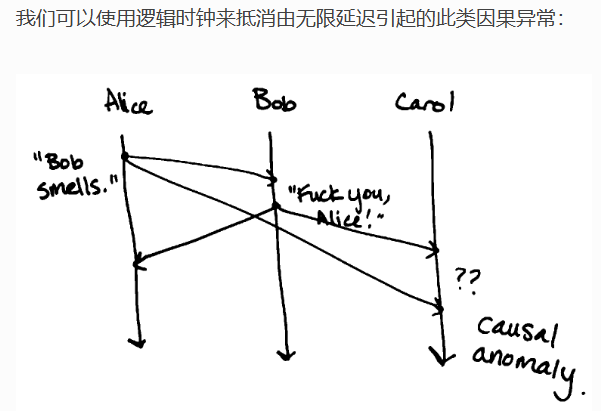 我们可以使用逻辑时钟来抵消由无限延迟引起的此类因果异常：
Alice
Bob
Carol
"Bob
smells."
"Fuck you,
Alice!"
??
causal
anomaly.